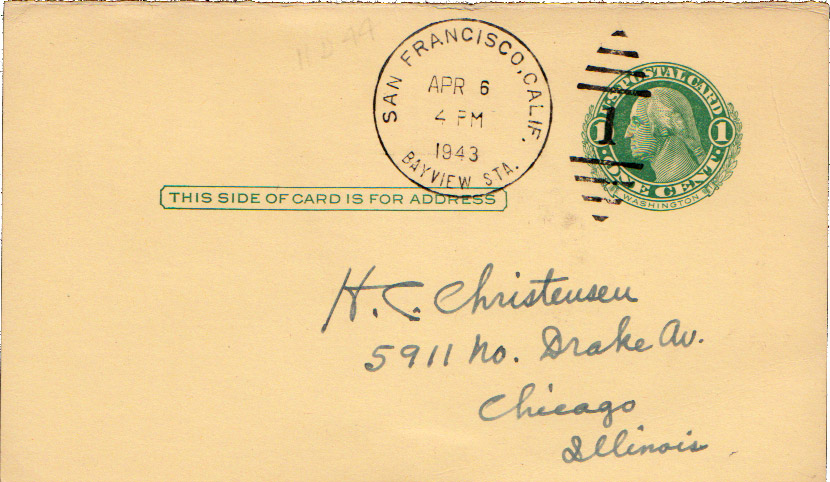 SAN FRANCISCO, CALIF.
APR 6
4 PM
1943
BAYVIEW STA.
1
U.S. POSTAL CARD
1 1
ONE CENT
WASHINGTON
THIS SIDE OF CARD IS FOR ADDRESS
H. C. Christensen
5911 No. Drake Av.
Chicago
Illinois